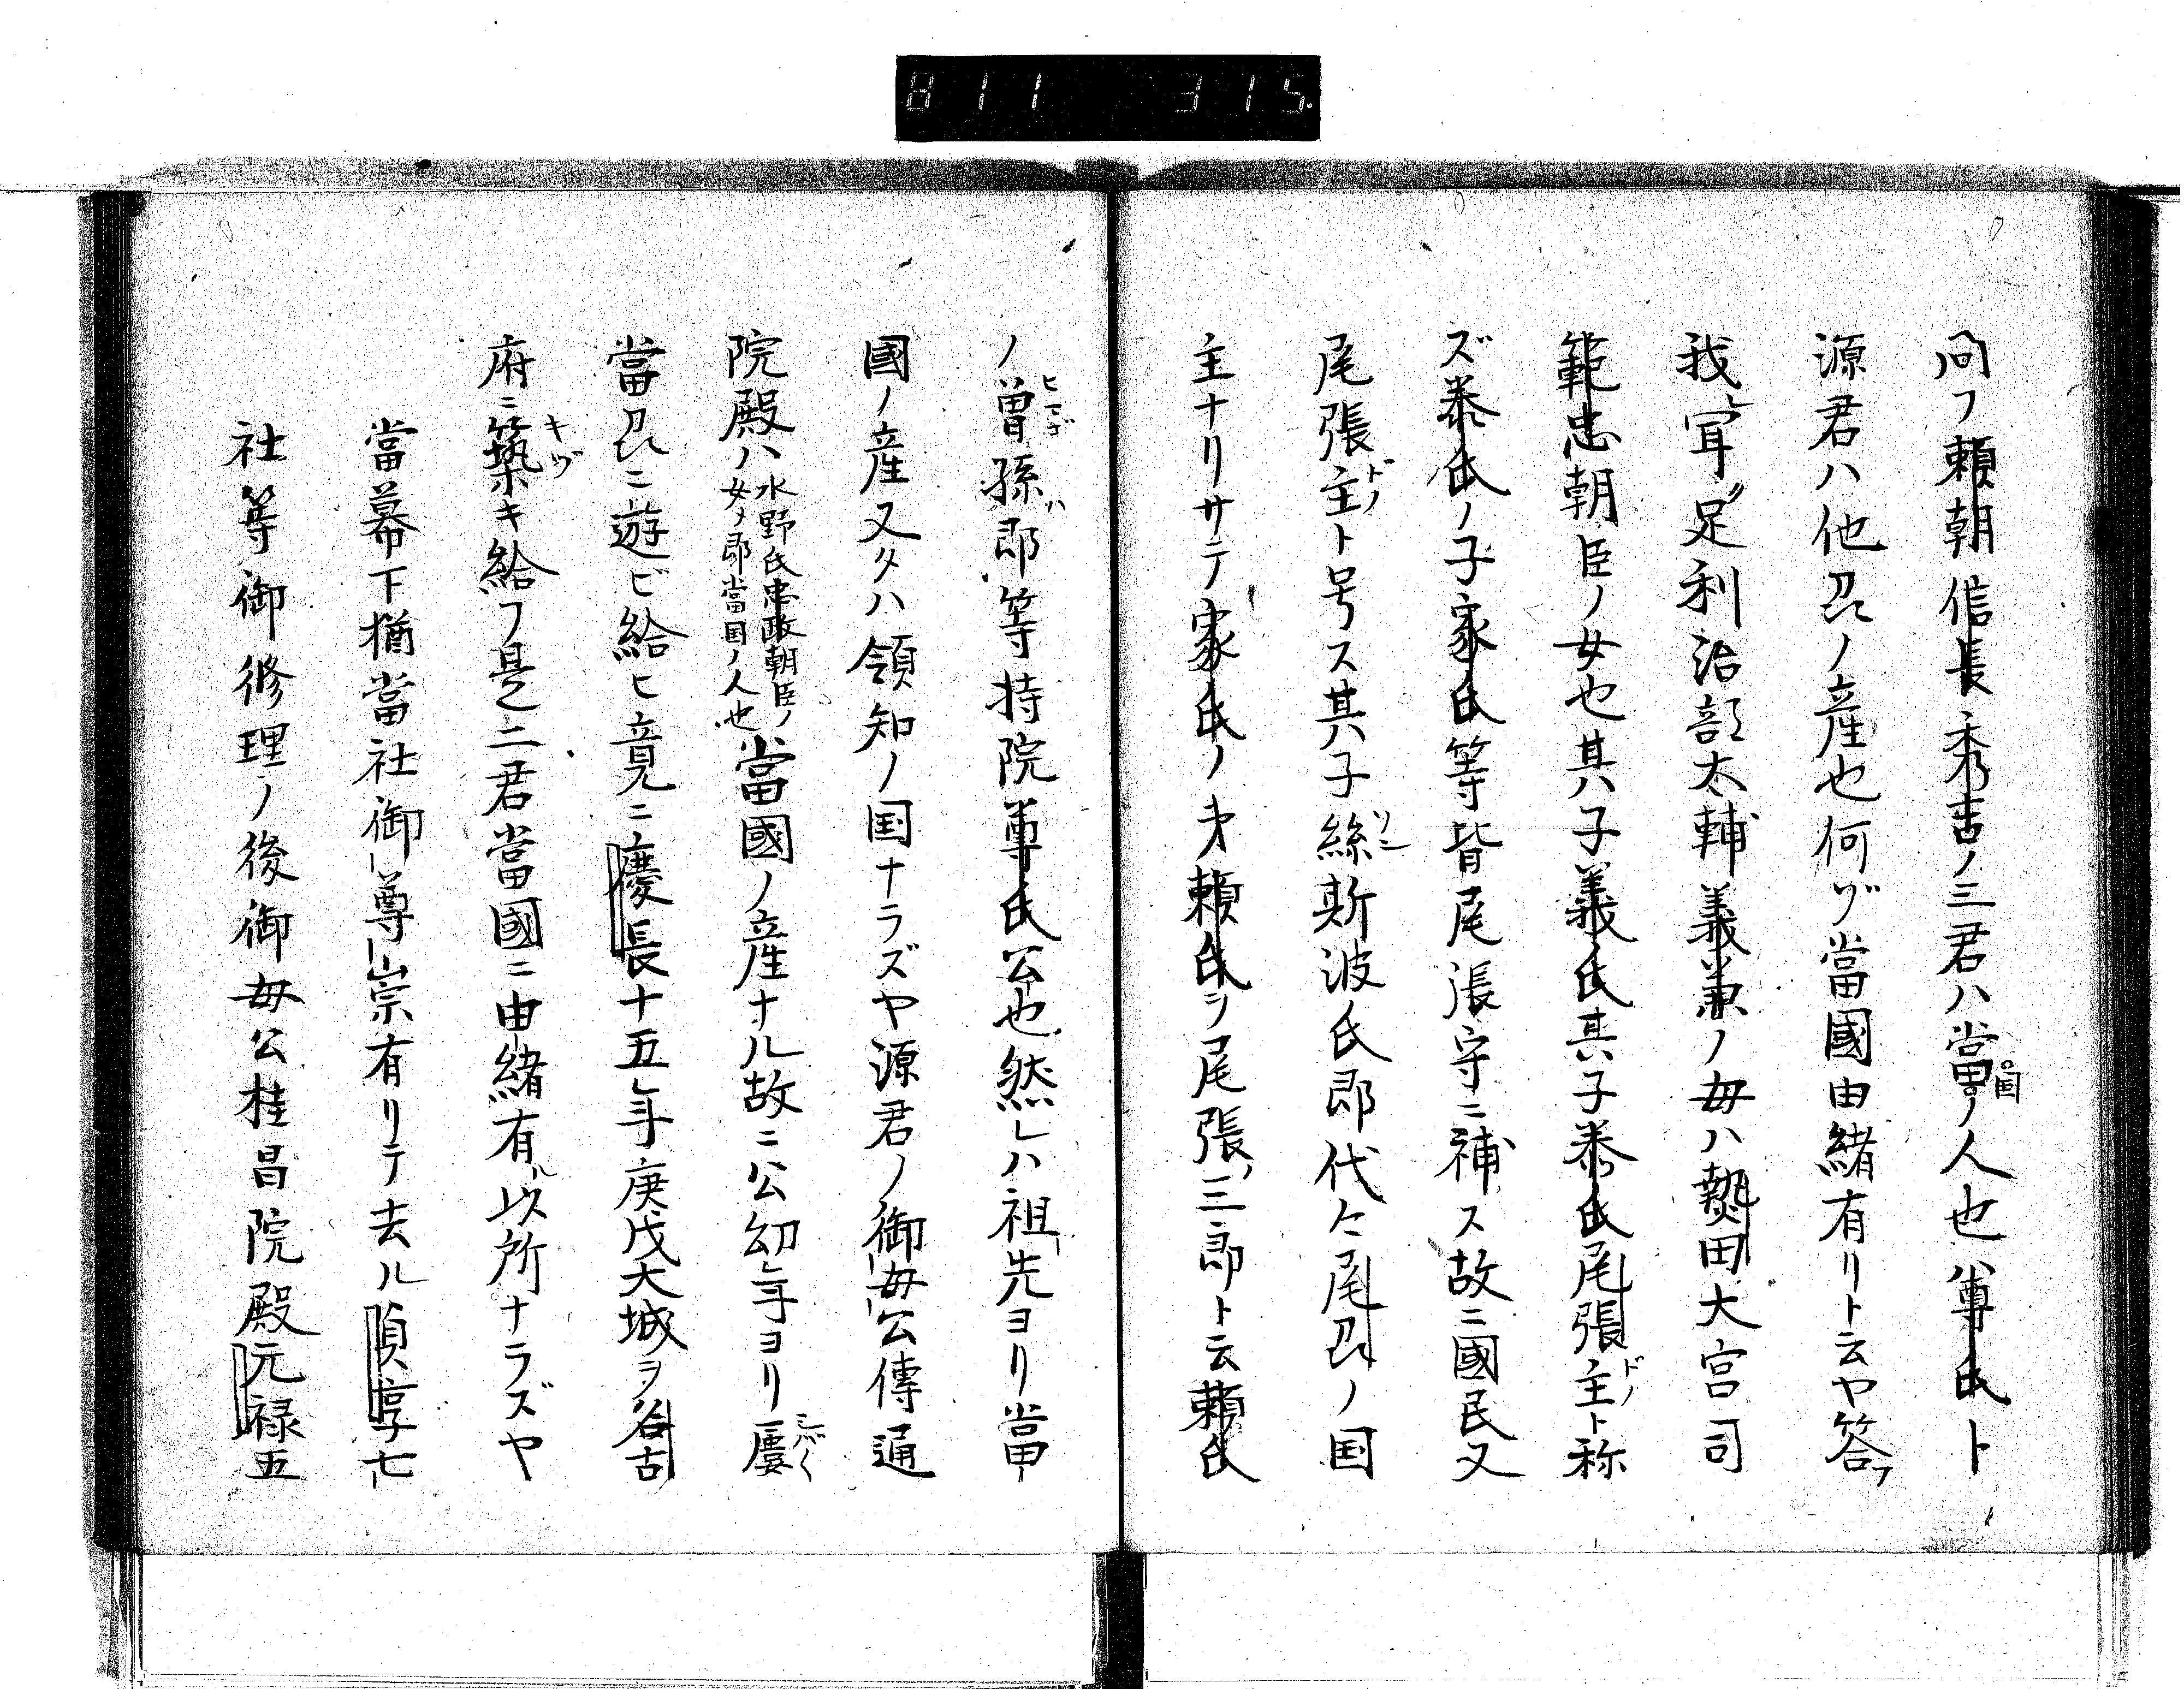 811 315.
問フ頼朝信長秀吉ノ三君ハ當国ノ人也尊氏ト
源君ハ他刕ノ産也何ヅ當國由緒有リト云ヤ答フ
我レ聞ク足利治部太輔義兼ノ母ハ熱田大宮司
範忠朝臣ノ女也其子義氏其子泰氏尾張主ドノト称
ズ泰氏ノ子家氏等皆尾張守ニ補ス故ニ國民又
尾張主ドノト号ス其子絲斯波氏即代々尾刕ノ国
主ナリサテ家氏ノ才頼氏ヲ尾張ノ三郎ト云頼氏
ノ曽孫ハ即等持院尊氏公也然レハ祖先ヨリ當
國ノ産又タハ領知ノ国ナラズヤ源君ノ御母公傳通
院殿ハ水野氏忠政朝臣ノ女メ即當国ノ人也當國ノ産ナル故ニ公幼年ヨリ屢
當刕ニ遊ビ給ヒ竟ニ慶長十五年庚戌大城ヲ名古
府ニ築キヅキ給フ是レ二君當國ニ由緒有ル以所ナラズヤ
當幕下猶當社御尊崇有リテ去ル貞享七
社等御修理ノ後御母公桂昌院殿元禄五